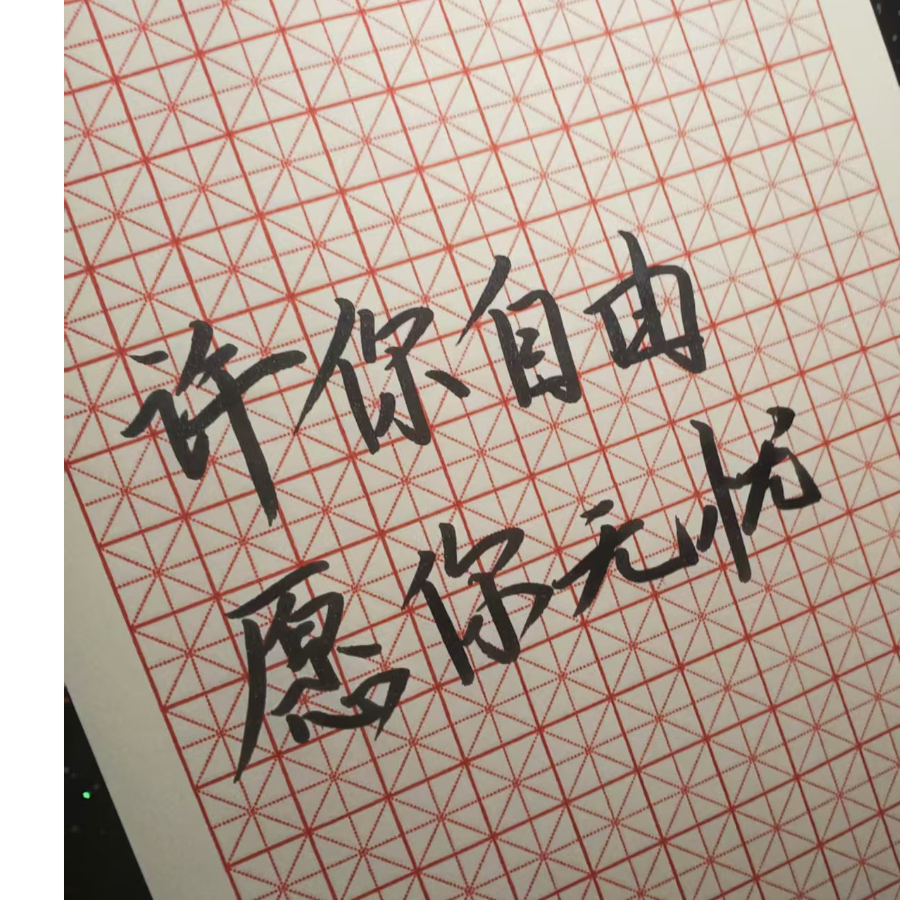 许你自由
愿你无忧